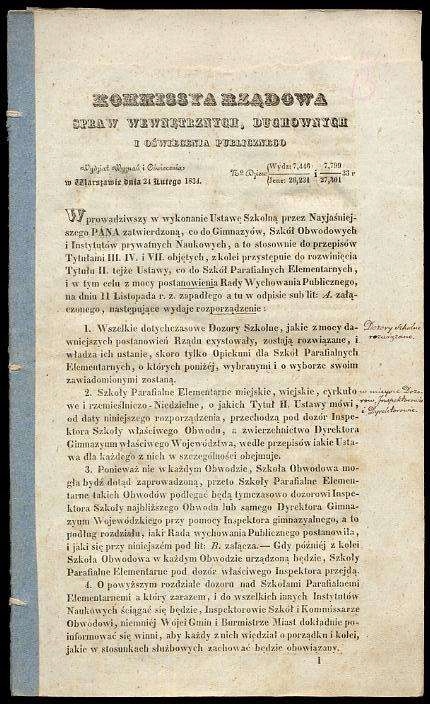 KOMMISSYA RZĄDOWA
SPRAW WEWNĘTRZNYCH, DUCHOWNYCH
I OŚWIECENIA PUBLICZNEGO
Wydział Wyznań i Oświecenia
w Warszawie dnia 24 Lutego 1834.
Wprowadziwszy w wykonanie Ustawę Szkolną przez Nayjaśniej-
szego PANA zatwierdzoną, co do Gimnazyów, Szkół Obwodowych
i Instytutów prywatnych Naukowych, a to stosownie do przepisów
Tytułami III. IV. i VII. objętych, z kolei przystępnie do rozwinięcia
Tytułu II. tejże Ustawy, co do Szkół Parafialnych Elementarnych,
i w tym celu z mocy postanowienia Rady Wychowania Publicznego,
na dniu 11 Listopada r. z. zapadłego a tu w odpisie sub lit: A. załą-
czonego, następujące wydaje rozporządzenie:
1. Wszelkie dotychczasowe Dozory Szkolne, jakie z mocy da-
wniejszych postanowień Rządu exystowały, zostają rozwiązane, i
władza ich ustanie, skoro tylko Opiekuni dla Szkół Parafialnych
Elementarnych, o których poniżej, wybranymi i o wyborze swoim
zawiadomionymi zostaną.
Dozory Szkolne
rozwiązane.
2. Szkoły Parafialne Elementarne miejskie, wiejskie, cyrkuło-
we i rzemieślniczo-Niedzielne, o jakich Tytuł II. Ustawy mówi,
od daty niniejszego rozporządzenia, przechodzą pod dozór Inspe-
ktora Szkoły właściwego Obwodu, a zwierzchnictwo Dyrektora
Gimnazyum właściwego Województwa, wedle przepisów iakie Usta-
wa dla każdego z nich w szczególności obejmuje.
w miejsce Dozo-
rów, Inspektorowie
i Dyrektorowie.
3. Ponieważ nie w każdym Obwodzie, Szkoła Obwodowa mo-
gła bydź dotąd zaprowadzoną, przeto Szkoły Parafialne Elemen-
tarne takich Obwodów podlegać będą tymczasowo dozorowi Inspe-
ktora Szkoły najbliższego Obwodu lub samego Dyrektora Gimna-
zyum Wojewódzkiego przy pomocy Inspektora gimnazyalnego, a to
podług rozdziału, iaki Rada wychowania Publicznego postanowiła,
i jaki się przy niniejszém pod lit: B. załącza.— Gdy później z kolei
Szkoła Obwodowa w każdym Obwodzie urządzoną będzie, Szkoły
Parafialne Elementarne pod dozór właściwego Inspektora przejdą.
4. O powyższym rozdziale dozoru nad Szkołami Parafialnemi
Elementarnemi a który zarazem, i do wszelkich innych Instytutów
Naukowych ściągać się będzie, Inspektorowie Szkół i Kommissarze
Obwodowi, niemniéj Wójci Gmin i Burmistrze Miast dokładnie po-
informować się winni, aby każdy z nich wiedział o porządku i kolei,
jakie w stosunkach służbowych zachować będzie obowiązany.
1